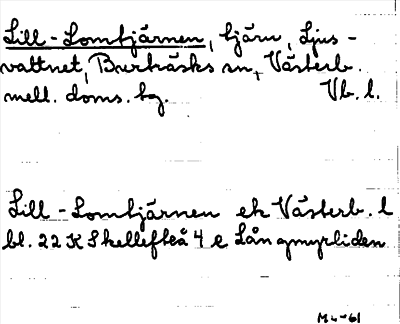 Lill-Lomtjärnen, tjärn, Ljus-
vattnet, Burträsks sn, Västerb.
mell. doms. hg. Vb. l.
Lill-Lomtjärnen ek Västerb. l
bl. 22 K Skellefteå 4 e Långmyrliden